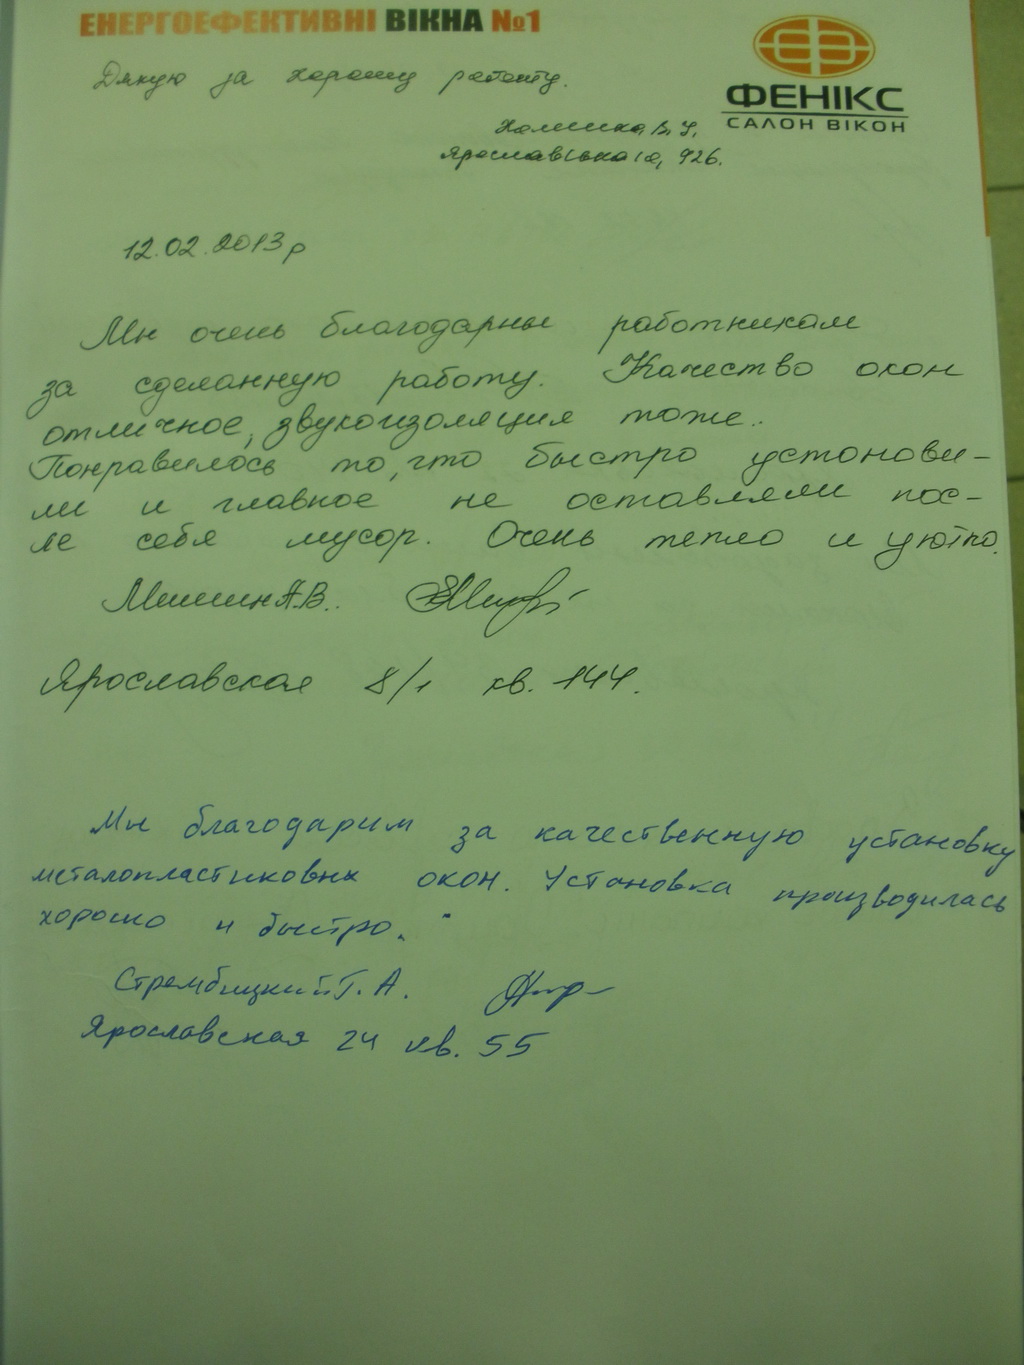 ЕНЕРГОЕФЕКТИВНІ ВІКНА №1
ФЕНІКС
САЛОН ВІКОН
Дякую за хорошу роботу.
В. І.
Ярославська 10, 926.
12.02.2013р
Мы очень благодарны работникам
за сделанную работу. Качество окон
отличное, звукоизоляция тоже..
Понравилось то, что быстро установи-
ли и главное не оставляли пос-
ле себя мусор. Очень тепло и уютно.
Мишин А.В..
Ярославская 8/1 кв. 144.
Мы благодарим за качественную установку
металопластиковых окон. Установка производилась
хорошо и быстро.
Стрембицкий Г. А.
Ярославская 24 кв. 55